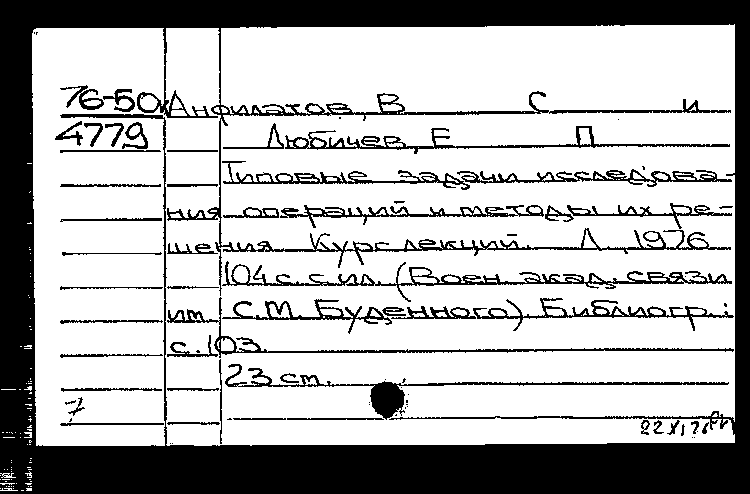 76-50 Анфилатов, В С и
4779 Любичев, Е П
Типовые задачи исследова-
ния операций и методы их ре-
шения. Курс лекций. Л., 1976
104 с. с ил. (Воен. акад. связи
им. С.М. Буденного). Библиогр.:
с. 103.
23 см.
7
22 XI 76